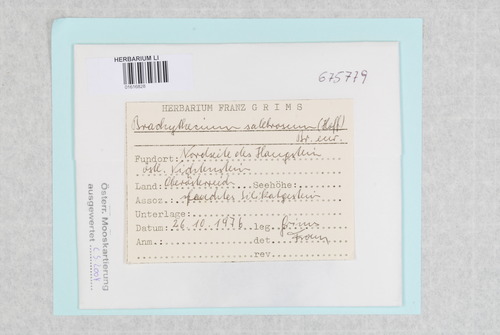 HERBARIUM LI
675779
HERBARIUM FRANZ GRIMS
Brachythecium salebrosum (Hoff)
Br. eur.
Fundort: Nordseite des Haugstein
östl.
Land: Oberösterreich Seehöhe:
Assoz.
Unterlage:
Datum: 26.10.1976 leg. Grims
Anm.: det. Franz
rev.
Österr. Mooskartierung
ausgewertet